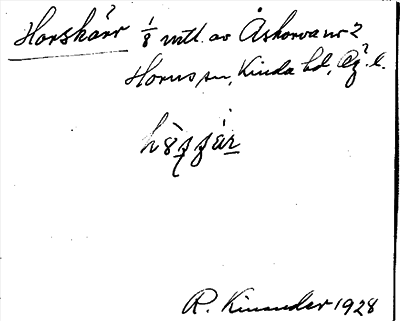 Horskärr 1/8 mtl. av Åskorva nr 2
Horns sn, Kinda hd, Ög. l.
R. Kinander 1928